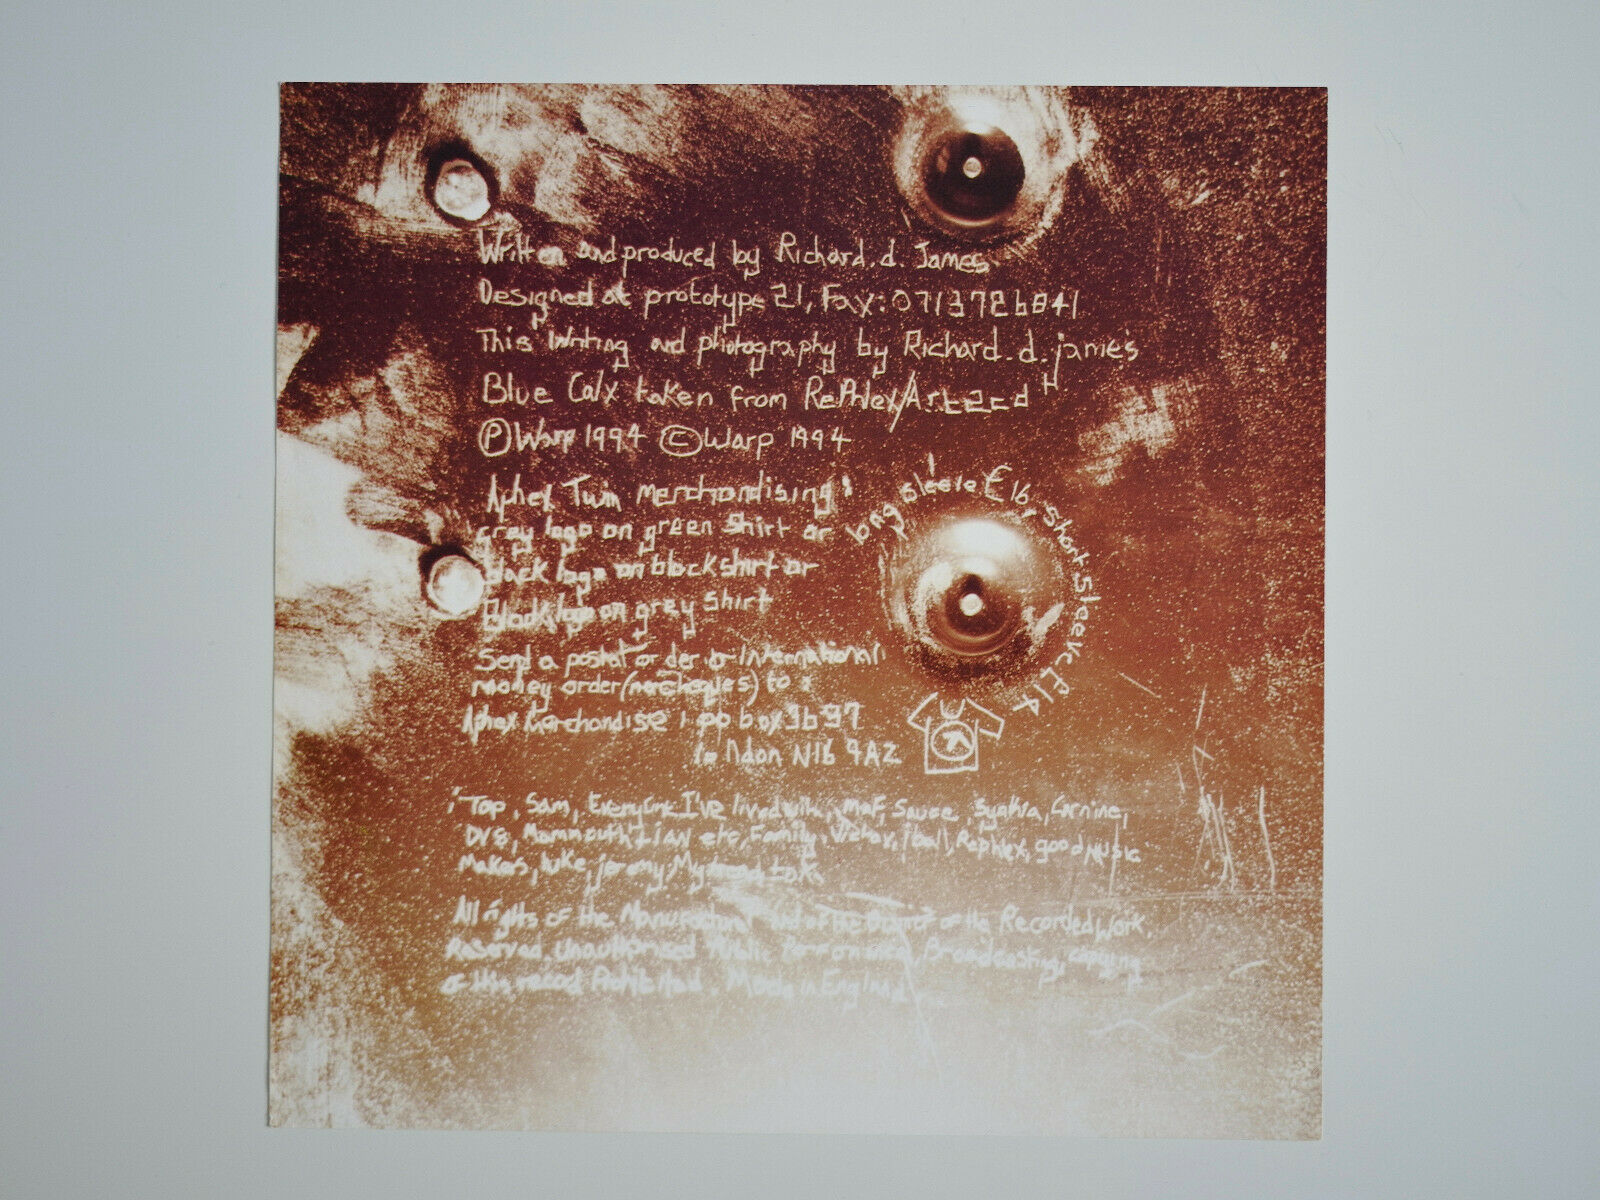 Written and produced by Richard.d.James
Designed at prototype 21, Fax: 0713726841
This writing and photography by Richard.d.james
Blue Calx taken from Rephlex/Art 2cd
Ⓟ Warp 1994 © Warp 1994
Aphex Twin merchandising:
grey logo on green Shirt or
black logo on black shirt or
Black logo on grey Shirt
long sleeve £16, Short Sleeve £14
Send a postal order or International
money order (no cheques) to:
Aphex Merchandise: po box
london N16 9AZ
Top, Sam, Everyone I've lived with, Sauce,
etc, Family, Rephlex, good Music
Makers, luke, jeremy, My
All rights of the Manufacturer and of the Owner of the Recorded Work.
Reserved. Unauthorised Public Performance, Broadcasting, copying
of this record Prohibited. Made in England